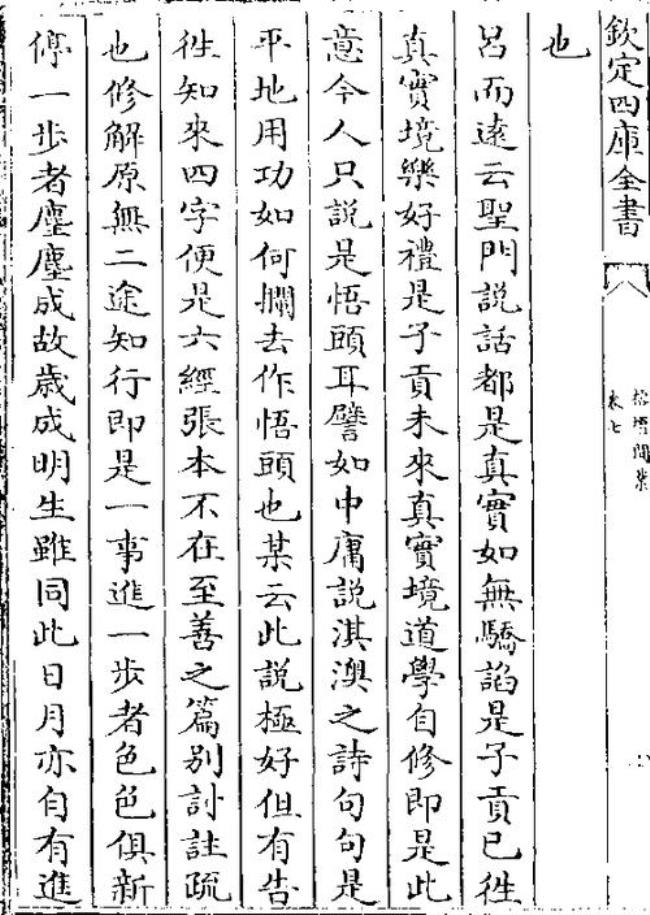 欽定四庫全書
榕壇問業
卷七
也
呂而遠云聖門説話都是真實如無驕諂是子貢已徃
真實境樂好禮是子貢未來真實境道學自修即是此
意今人只説是悟頭耳譬如中庸説淇澳之詩句句是
平地用功如何攔去作悟頭也某云此説極好但有告
徃知來四字便是六經張本不在至善之篇別討註疏
也修解原無二途知行即是一事進一步者色色俱新
停一步者塵塵成故歳成明生雖同此日月亦自有進